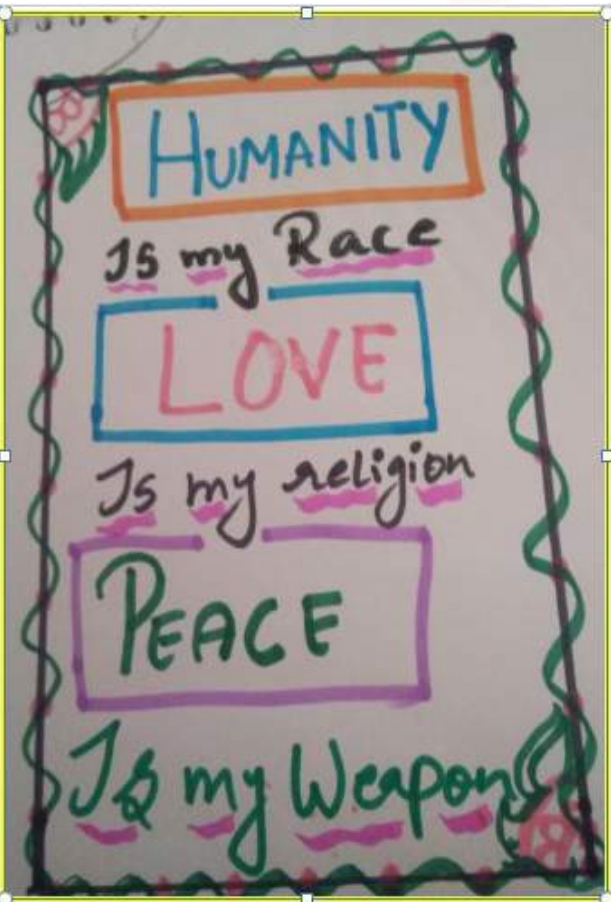 HUMANITY
Is my Race
LOVE
Is my religion
PEACE
Is my Weapon